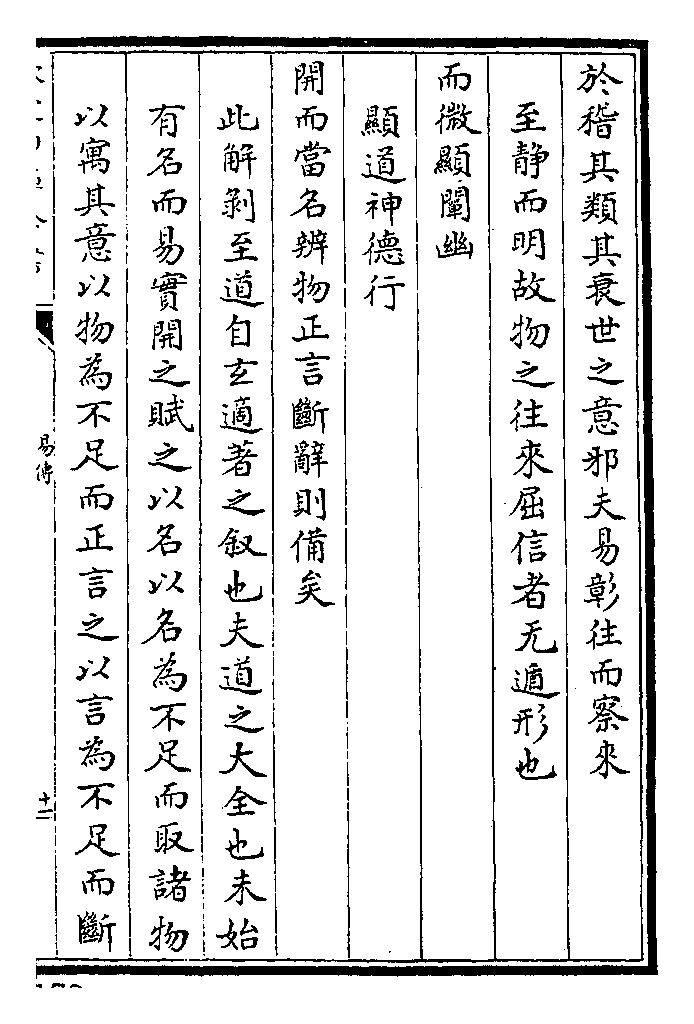 於稽其類其衰世之意邪夫易彰往而察來
至静而明故物之往來屈信者无遁形也
而微顯闡幽
顯道神德行
開而當名辨物正言斷辭則備矣
此解剝至道自玄適著之叙也夫道之大全也未始
有名而易實開之賦之以名以名為不足而取諸物
以寓其意以物為不足而正言之以言為不足而斷
易傳
十二